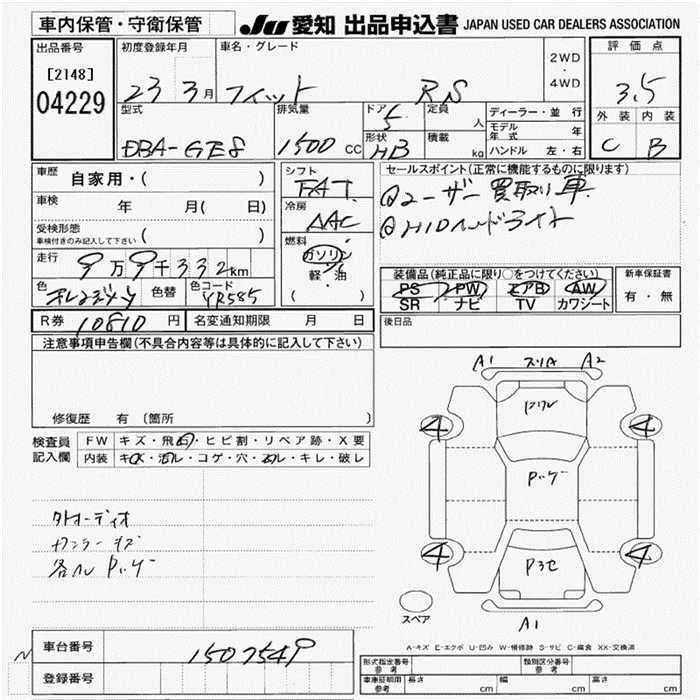 車内保管・守衛保管
JU 愛知 出品申込書 JAPAN USED CAR DEALERS ASSOCIATION
出品番号
[2148]
04229
初度登録年月
23 3月
車名・グレード
フィット RS
2WD
・
4WD
評価点
3.5
外装 内装
C B
型式
DBA-GE8
排気量
1500 CC
ドア
5
定員
人
形状
HB
積載
kg
ディーラー・並行
モデル年式 年
ハンドル 左・右
車歴
自家用・( )
車検 年 月( 日)
受検形態
車検付きのみ記入して下さい ( )
走行 9万9千332km
色 オレンジ
色替
色コード YR585
シフト
FAT
冷房
AAC
燃料
ガソリン
軽・油
( )
セールスポイント(正常に機能するものに限ります)
ユーザー買取り車
HIDヘッドライト
装備品(純正品に限り○をつけてください)
PS PW エアB AW
SR ナビ TV カワシート
新車保証書
有・無
R券 10810円
名変通知期限 月 日
後日品
注意事項申告欄(不具合内容等は具体的に記入して下さい)
修復歴 有 (箇所 )
検査員
記入欄
FW キズ・飛石・ヒビ割・リペア跡・X要
内装 キズ・汚レ・コゲ・穴・スレ・キレ・破レ
外オーディオ
各ヘル Pハゲ
A1 スリA A2
4 4
Pハゲ
4 4
A1
スペア
A-キズ E-エクボ U-凹み W-補修跡 S-サビ C-腐食 XX-交換済
車台番号 1507549
登録番号
型式指定番号 参考
類別区分番号 参考
車庫証明用 参考 長さ cm 幅 cm 高さ cm